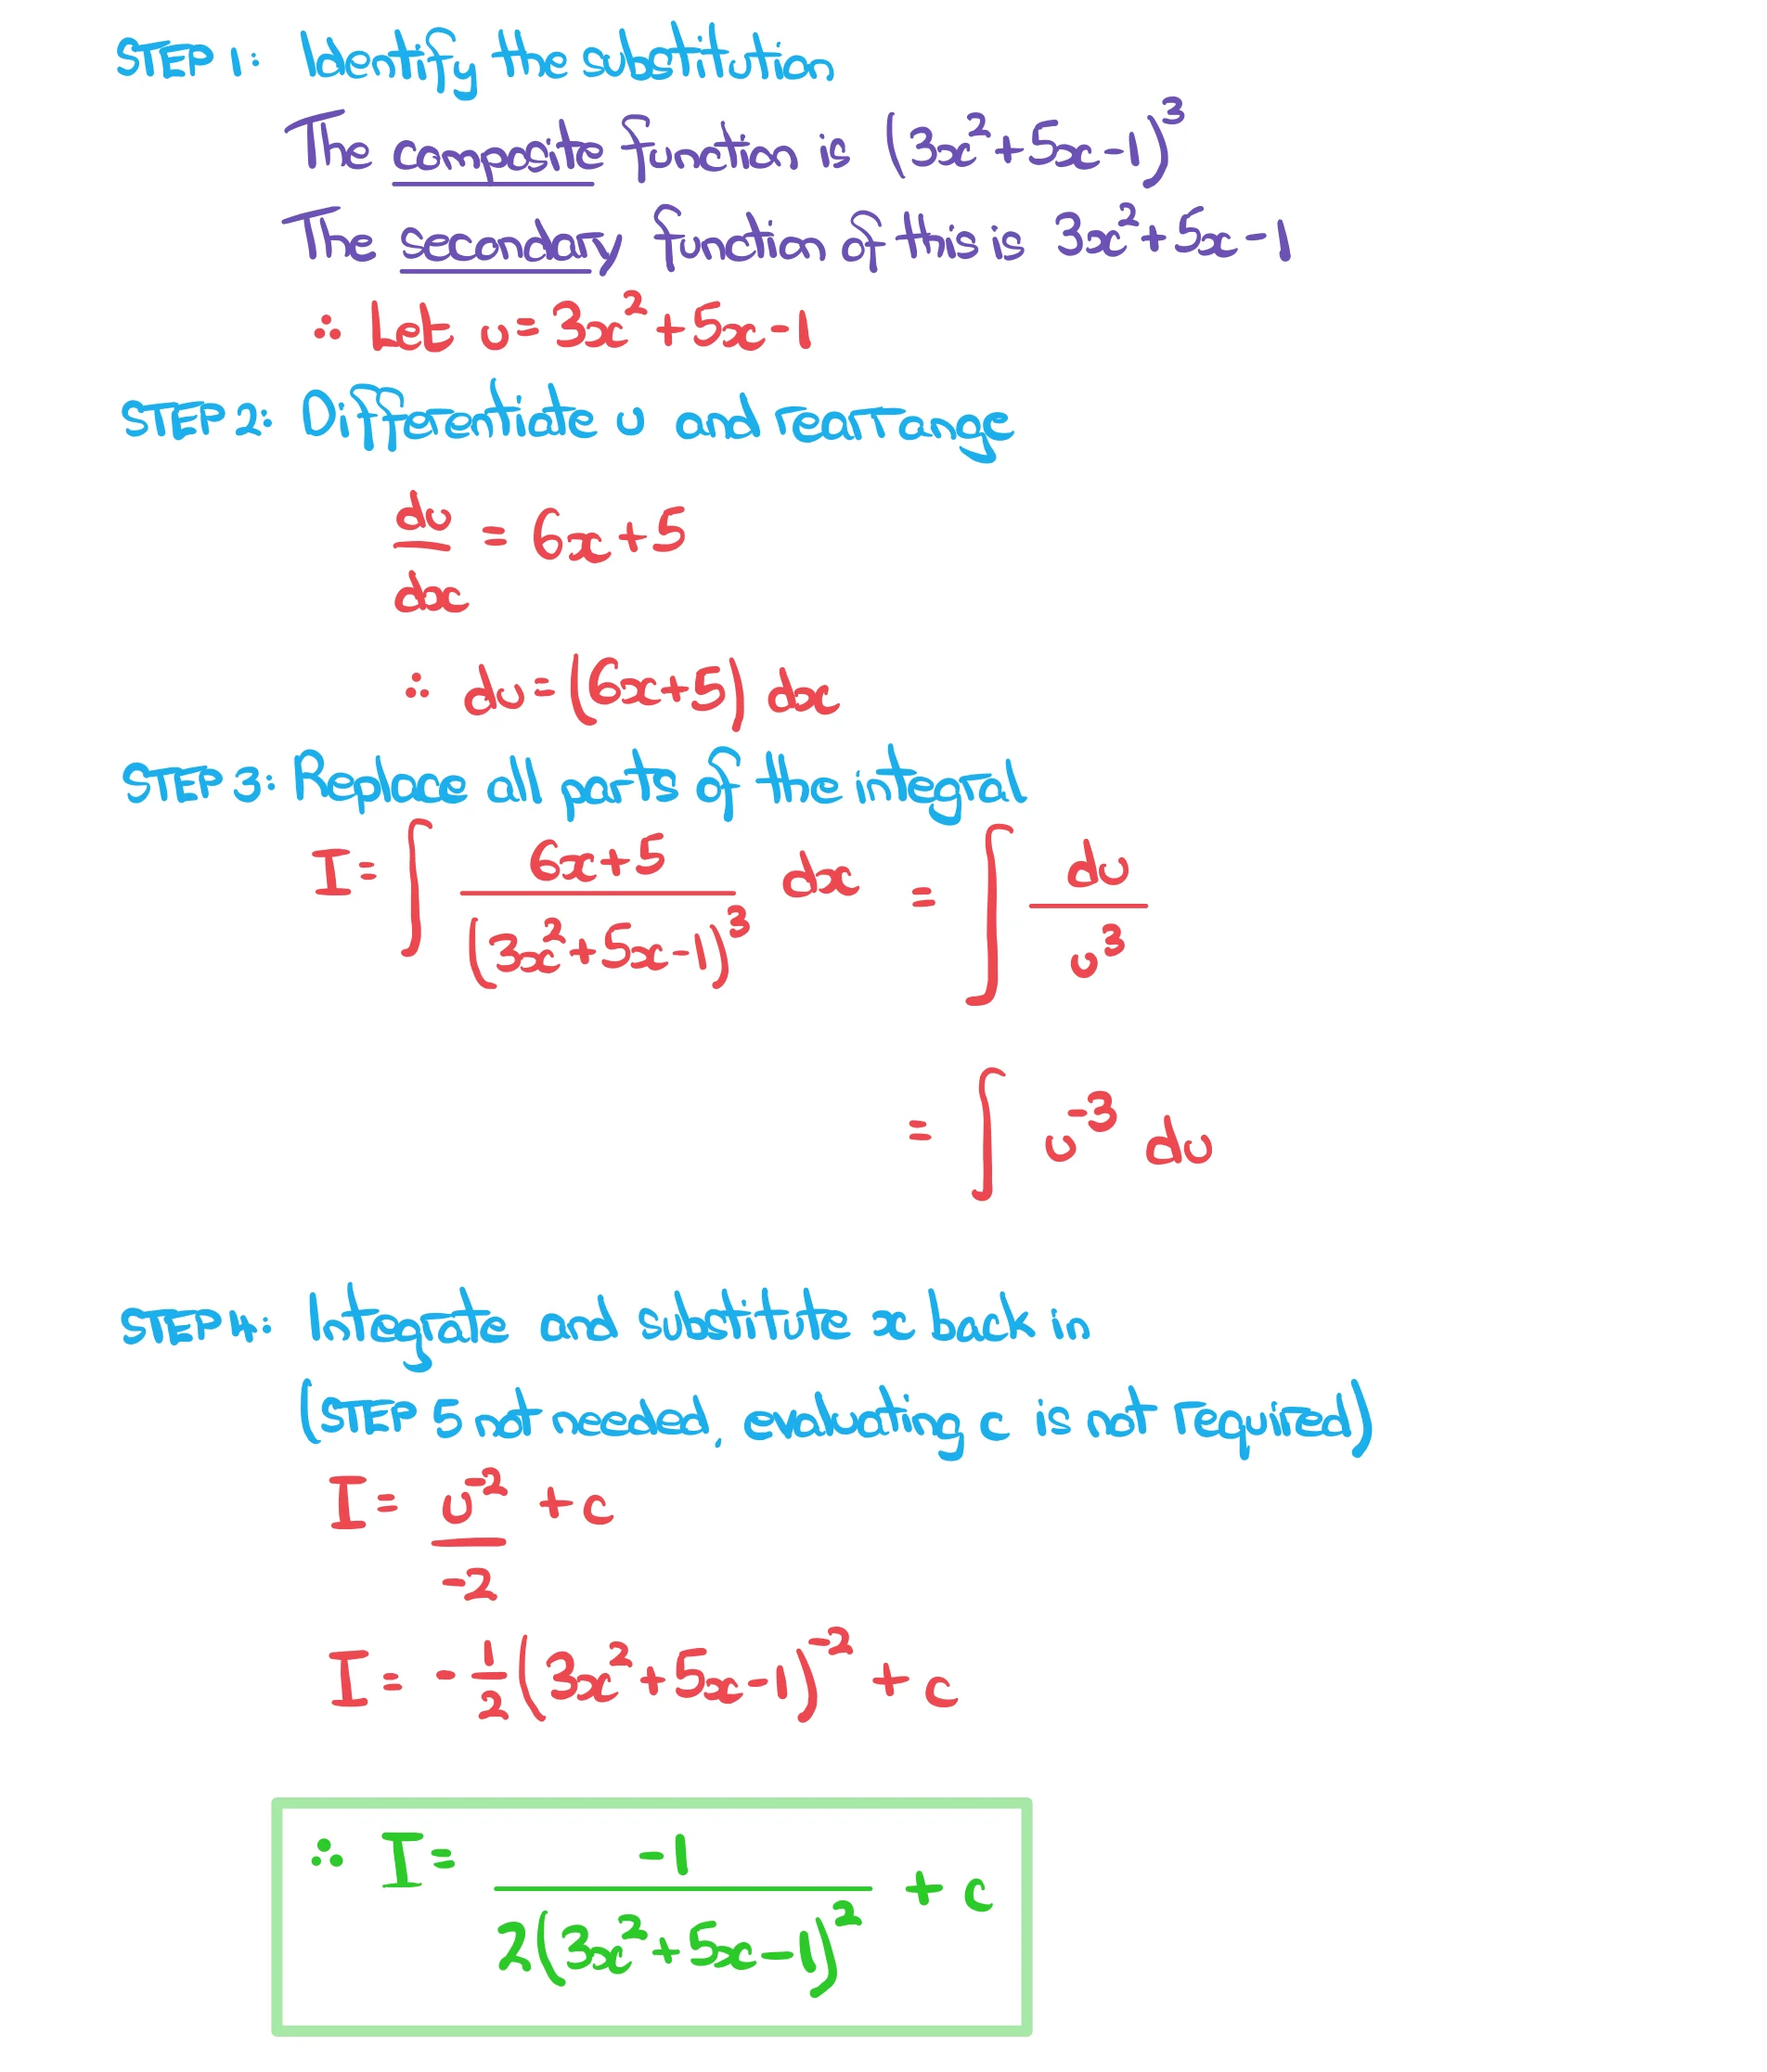 STEP 1: Identify the substitution
The composite function is (3x²+5x-1)³
The secondary function of this is 3x²+5x-1
∴ Let u=3x²+5x-1
STEP 2: Differentiate u and rearrange
du/dx = 6x+5
∴ du=(6x+5) dx
STEP 3: Replace all parts of the integral
I= ∫ (6x+5)/(3x²+5x-1)³ dx = ∫ du/u³
= ∫ u⁻³ du
STEP 4: Integrate and substitute x back in
(STEP 5 not needed, evaluating c is not required)
I= u⁻²/-2 +c
I= -1/2(3x²+5x-1)⁻² + c
∴ I= -1/2(3x²+5x-1)² + c